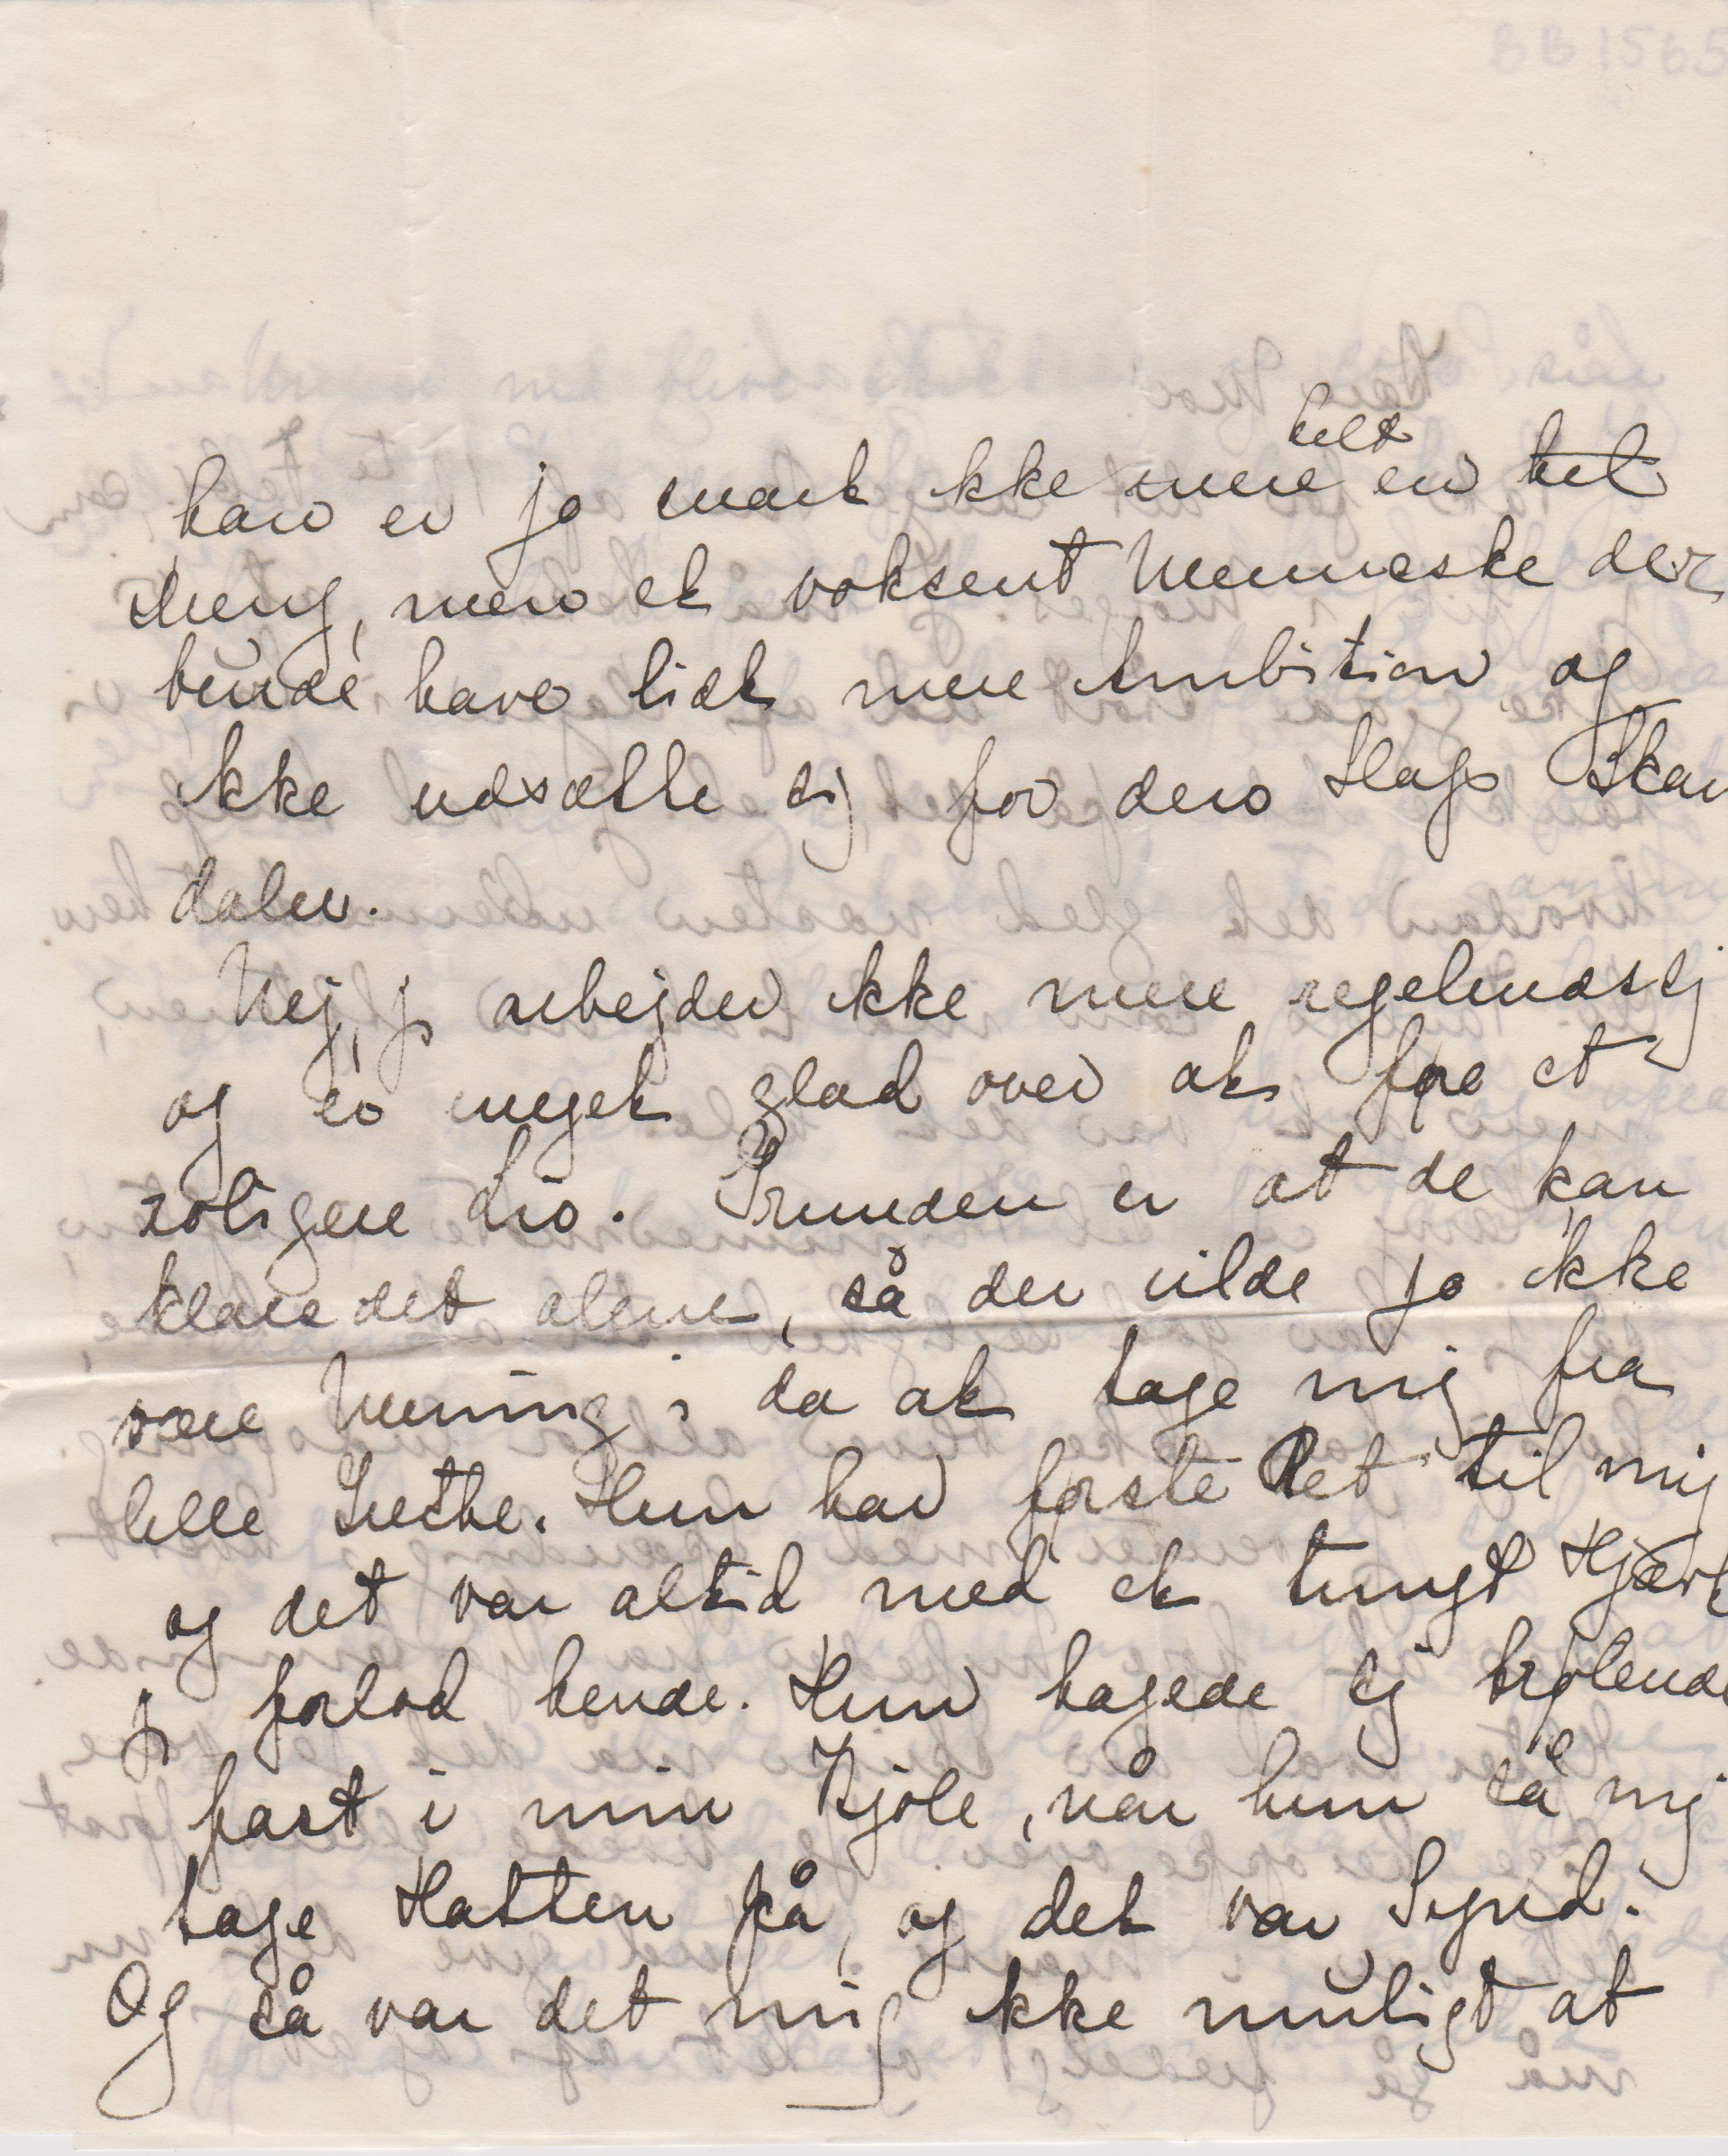 BB 1565
helt
han er jo snart ikke mere en hel
Dreng, men et voksent Menneske der
burde have lidt mere Ambition og
ikke udsætte sig for den Slags Skan
daler.
Nej, jeg arbejder ikke mere regelmæssig
og er meget glad over at føre et
roligere Liv. Grunden er at de kan
klare det alene, så der vilde jo ikke
være Mening i da at tage mig fra
lille Grethe. Hun har første Ret til mig
og det var altid med et tungt Hjærte
jeg forlod hende. Hun hagede sig brølende
fast i min Kjole, når hun så mig
tage Hatten på, og det var Synd.
Og så var det mig ikke muligt at